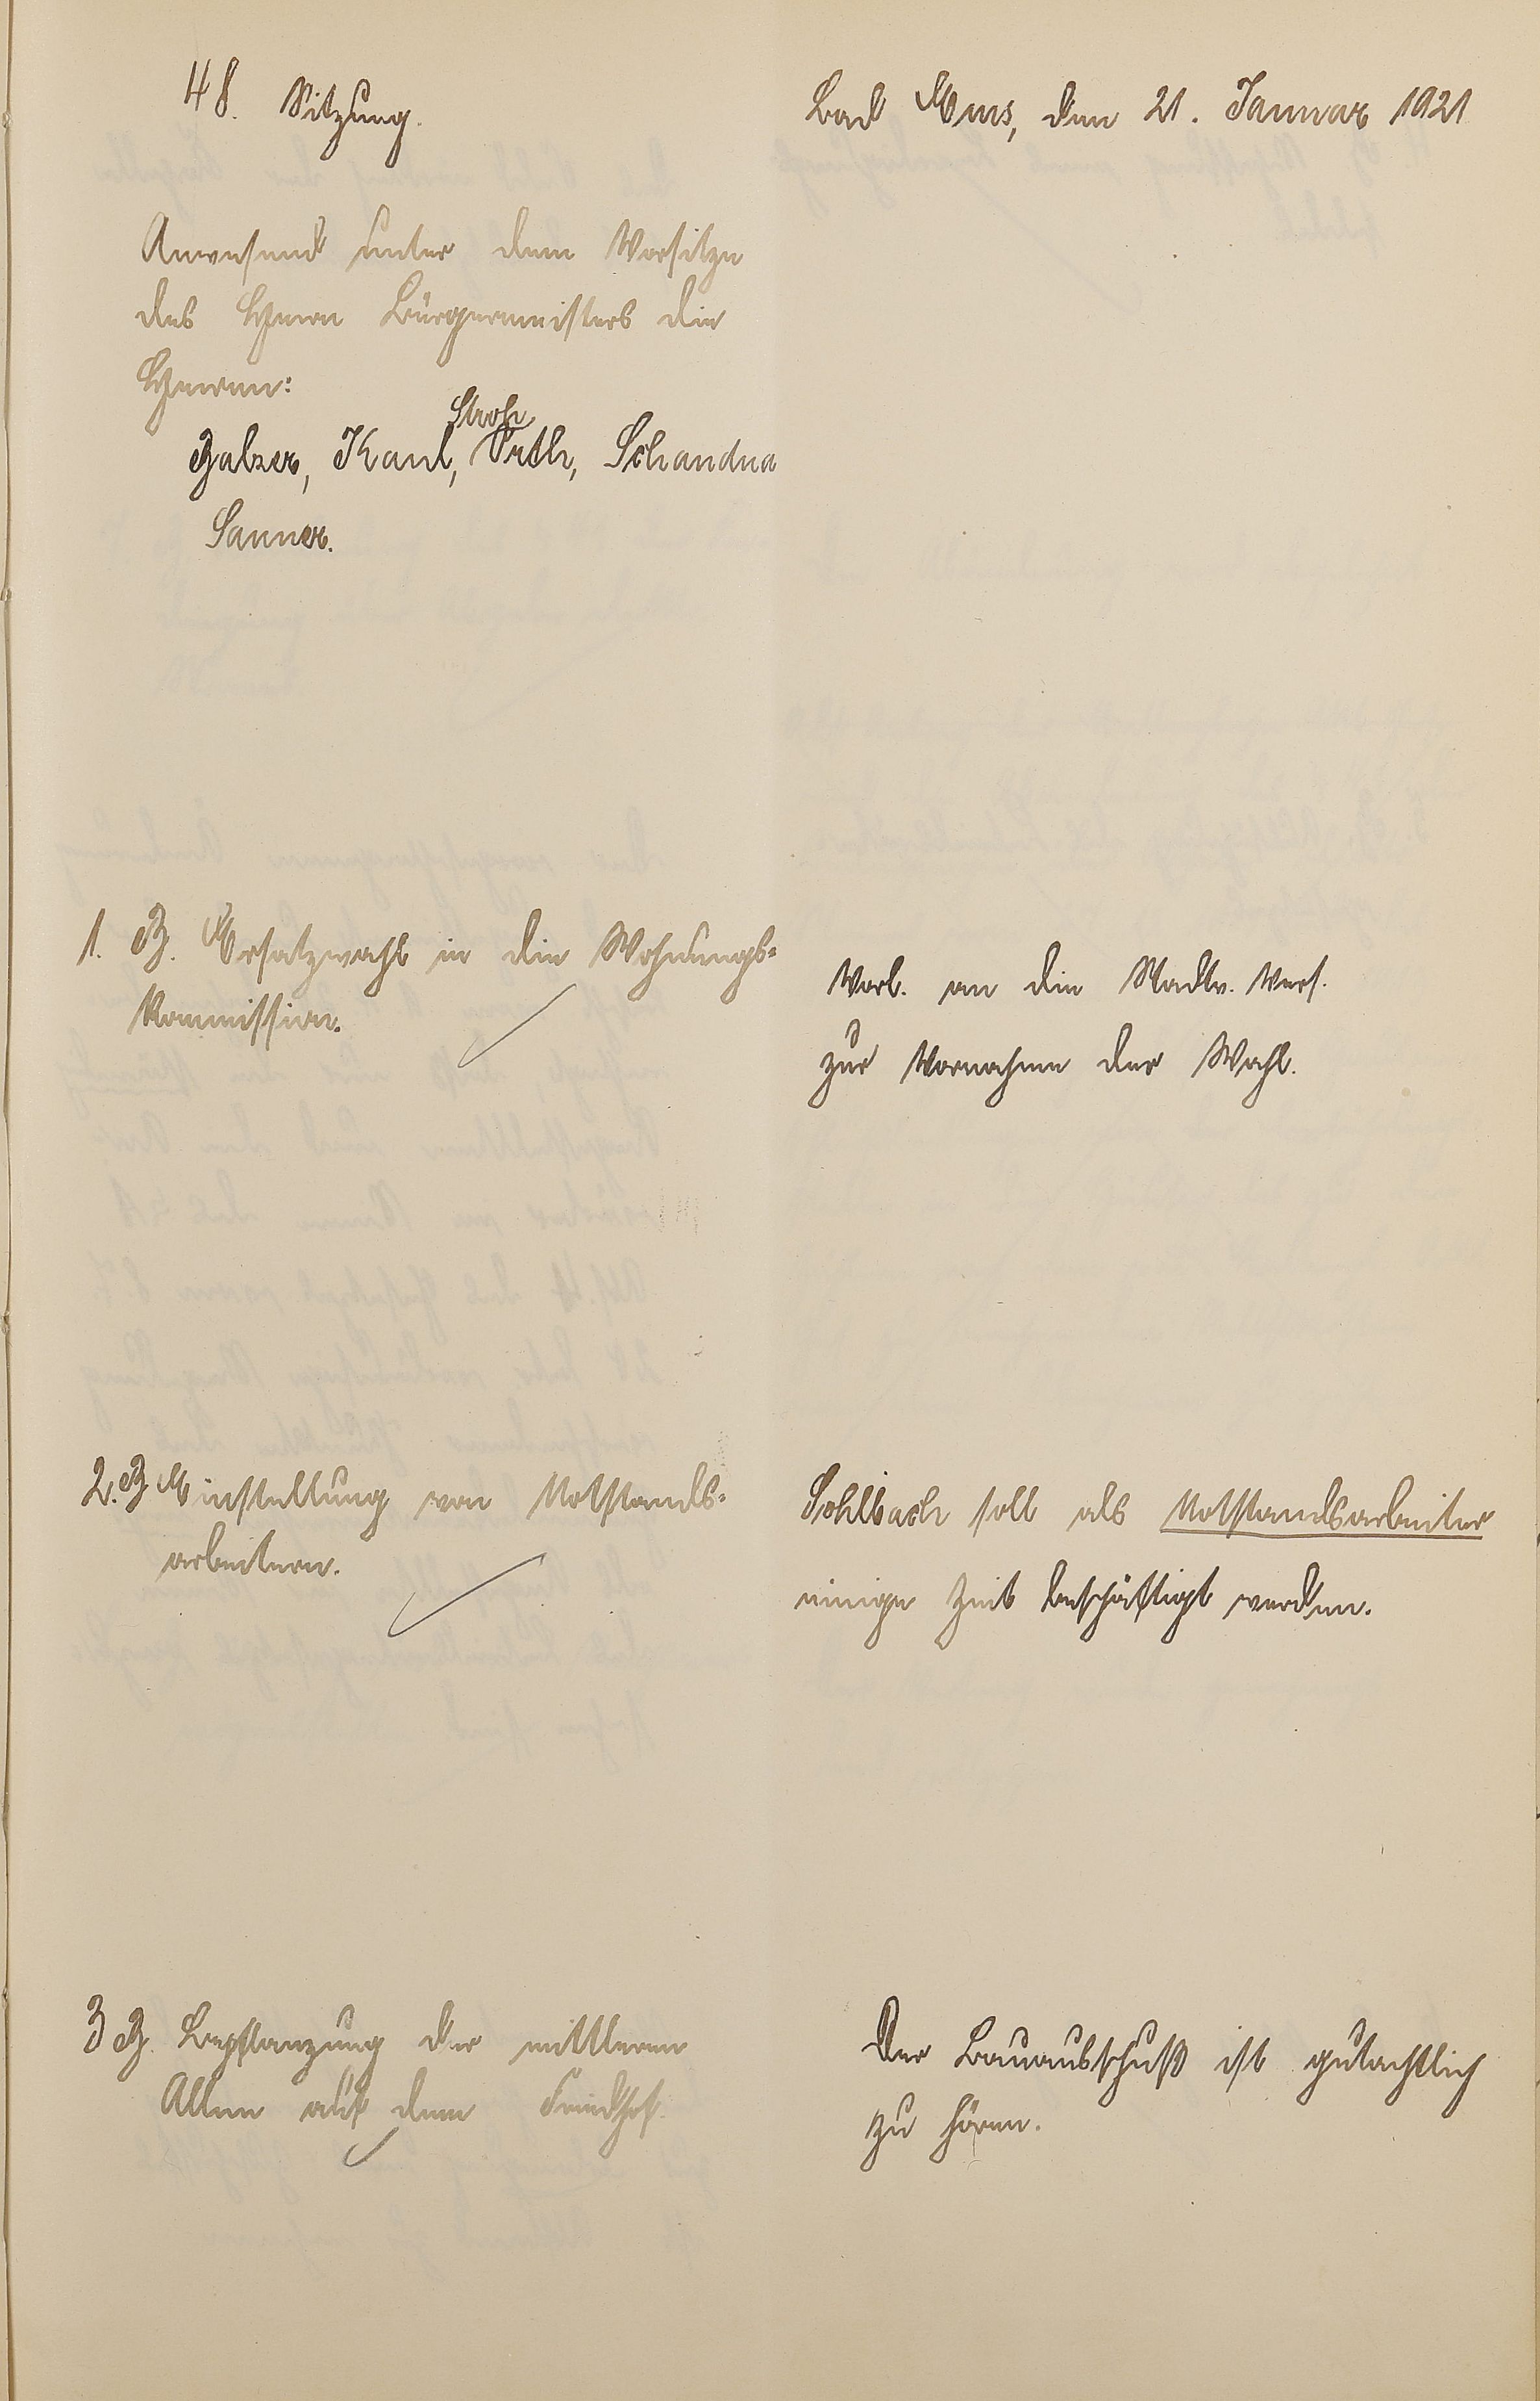 48. Sitzung.
Bad Ems, den 21. Januar 1921
Anwesend unter dem Vorsitze
des Herrn Bürgermeisters die
Herren:
Stroh
Balzer, Kaul, Orth, Schandua
Sanner.
1. B. Ersatzwahl in die Wohnungs-
kommission.
Vorl. an die Stadtv. Vers.
zur Vornahme der Wahl.
2. B Einstellung von Notstands-
arbeitern.
Sohlbach soll als Notstandsarbeiter
einige Zeit beschäftigt werden.
3 B. Bepflanzung der mittleren
Allee auf dem Friedhof.
Der Bauausschuß ist gutachtlich
zu hören.